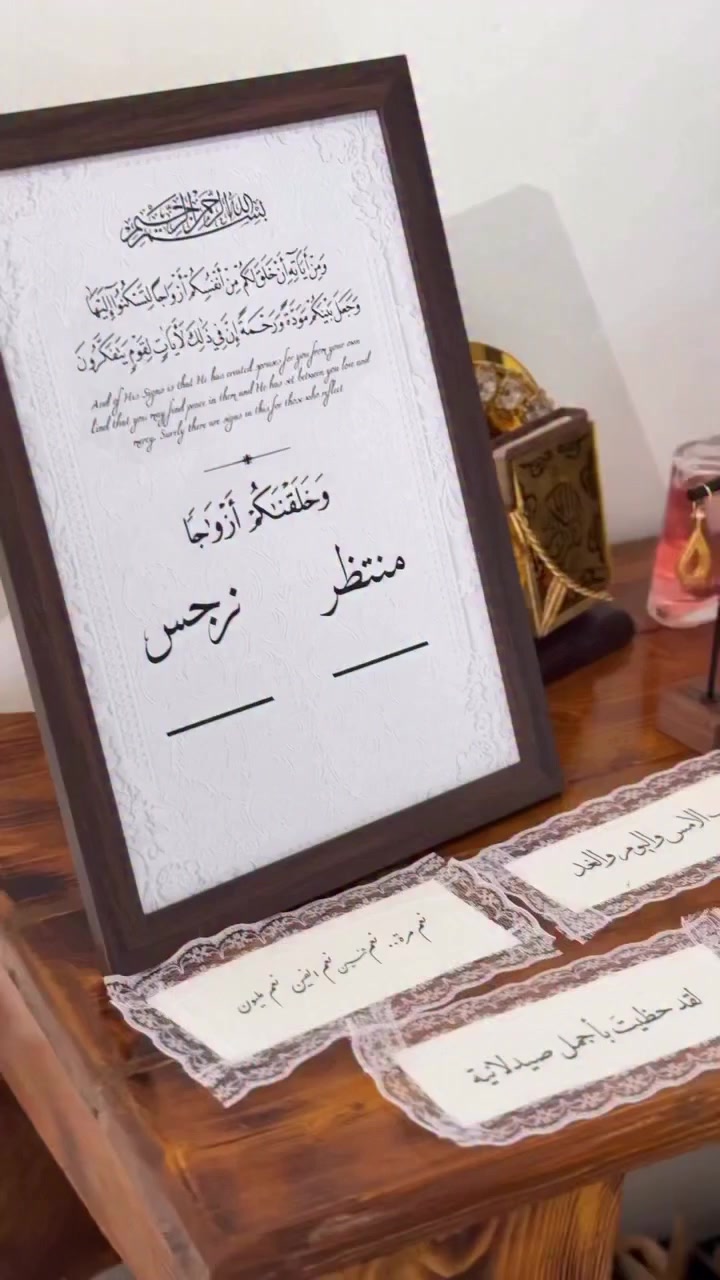 بسم الله الرحمن الرحيم
وَمِنْ أَيَاتِهِ أَنْ خَلَقَ لَكُمْ مِنْ أَنْفُسِكُمْ أَزْوَاجًا لِتَسْكُنُوا إِلَيْهَا
وَجَعَلَ بَيْنَكُمْ مَوَدَّةً وَرَحْمَةً إِنَّ فِي ذَلِكَ لَأَيَاتٍ لِقَوْمٍ يَتَفَكَّرُونَ
And of His Signs is that He has created spouses for you from your own
kind that you may find peace in them and He has set between you love and
mercy. Surely there are signs in this for those who reflect
وَخَلَقْنَاكُمْ أَزْوَاجًا
منتظر نرجس
الامس واليوم والغد
نعم مرة.. نعم خمسين نعم الفين نعم مليون
لقد حظيت بأجمل صيدلانية